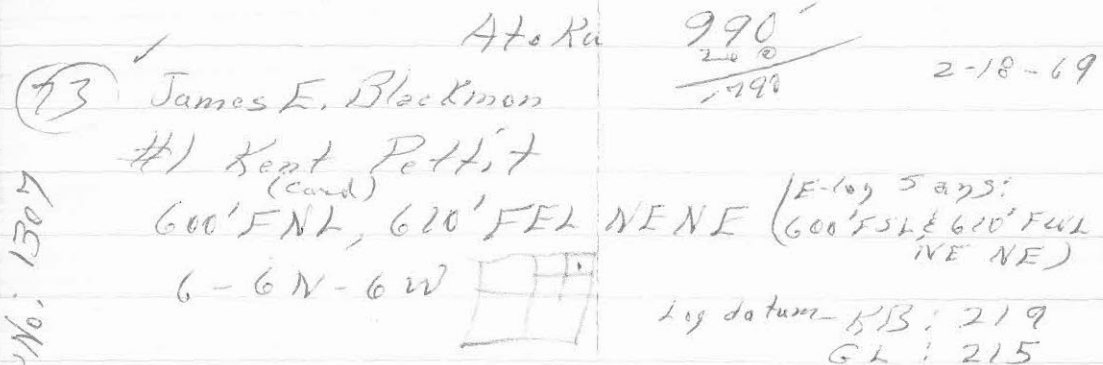 Atoka 990'
200
.798
2-18-69
73 James E. Blackmon
#1 Kent Pettit
(card)
600' FNL, 620' FEL NENE (E-log says:
600' FSL & 620' FWL
NE NE)
6-6N-6W
Log datum - KB: 219
GL: 215
No: 1307